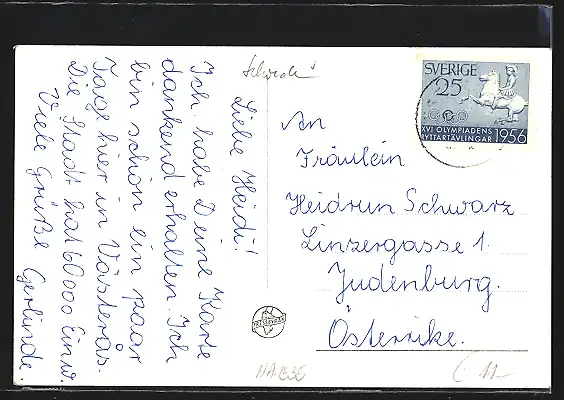 Schwed.
Liebe Heidi!
Ich habe Deine Karte
dankend erhalten. Ich
bin schon ein paar
Tage hier in Västerås.
Die Stadt hat 60 000 Einw.
Viele Grüße Gerlinde
SVERIGE
25
XVI OLYMPIADENS
RYTTARTÄVLINGAR 1956
An
Fräulein
Heidrun Schwarz
Linzergasse 1.
Judenburg.
Österrike.